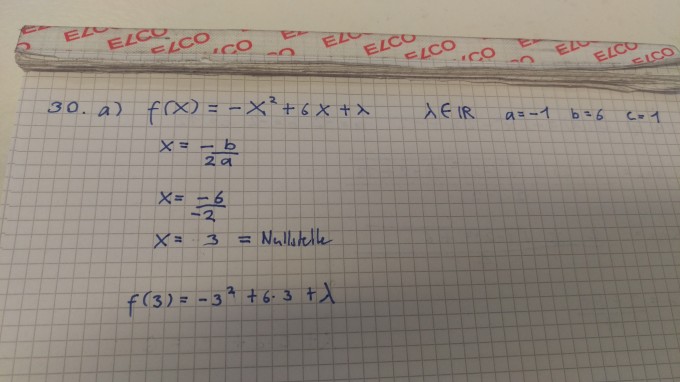 ELCO ELCO ELCO ELCO ELCO ELCO
30. a) f(x) = -x² + 6x + λ λ∈ℝ a=-1 b=6 c=1
x = -b/2a
x = -6/-2
x = 3 = Nullstelle
f(3) = -3² + 6·3 + λ